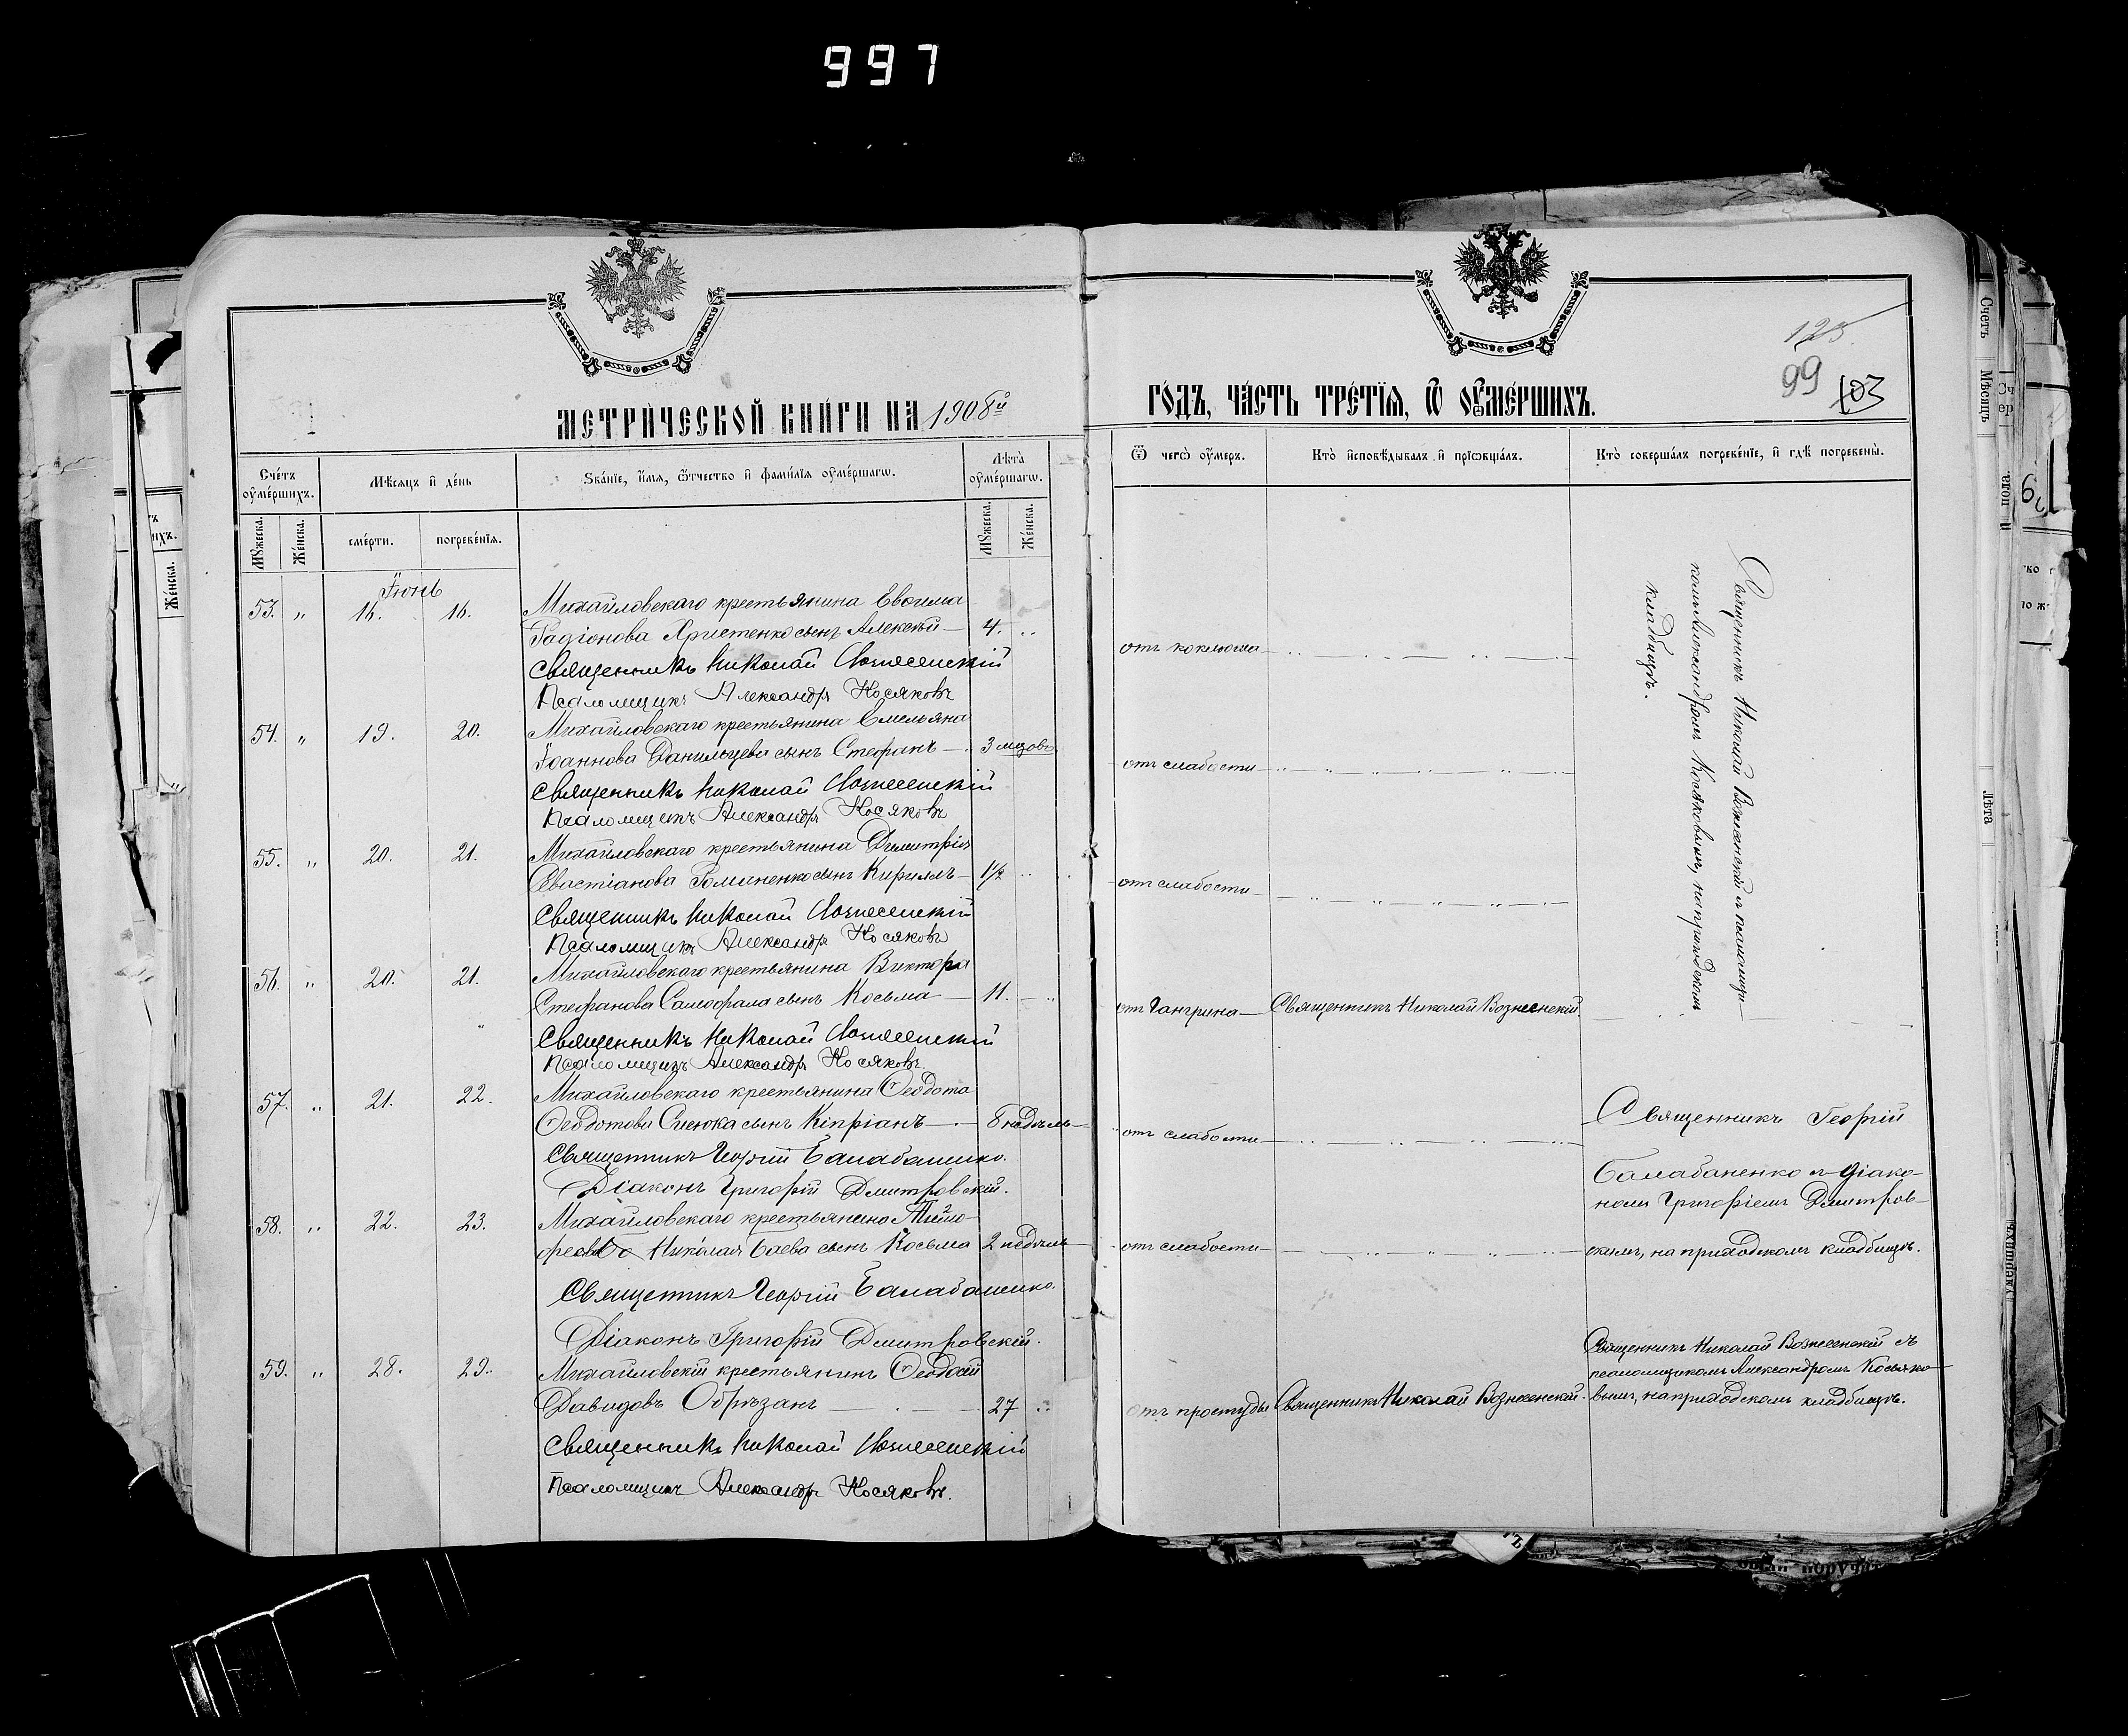 997
125
99 103
МЕТРИЧЕСКОЙ КНИГИ НА 1908й
ГОДЪ, ЧАСТЬ ТРЕТІЯ, Ѡ ОУМЕРШИХЪ.
Счетъ оумершихъ.
Мѣсяцъ и день
Званіе, имя, ѿчество и фамилія оумершагѡ.
Лѣта оумершагѡ.
Ѿ чегѡ оумеръ.
Кто исповѣдывалъ и пріѡбщалъ.
Кто совершалъ погребеніе, и гдѣ погребены.
Мꙋжеска.
Женска.
смерти.
погребенія.
Мꙋжеска.
Женска.
Іюнь
53. „ 16. 16. Михайловскаго крестьянина Евѳима
Родіонова Христенко сынъ Алексѣй — 4. отъ коклюша
Священникъ Николай Вознесенскій
Псаломщикъ Александръ Косяковъ
54. „ 19. 20. Михайловскаго крестьянина Емельяна
Іоаннова Данильцева сынъ Стефанъ — 3 мѣсяцовъ отъ слабости
Священникъ Николай Вознесенскій
Псаломщикъ Александръ Косяковъ
55. „ 20. 21. Михайловскаго крестьянина Димитрія
Севастіанова Романенко сынъ Кириллъ — 1/2 отъ слабости
Священникъ Николай Вознесенскій
Псаломщикъ Александръ Косяковъ
56. „ 20. 21. Михайловскаго крестьянина Виктора
Стефанова сынъ Косьма — 11. отъ Гангрина — Священникъ Николай Вознесенскій.
Священникъ Николай Вознесенскій
Псаломщикъ Александръ Косяковъ.
Священникъ Николай Вознесенскій съ псаломщи-
комъ Александромъ Косяковымъ, на приходскомъ
кладбищѣ.
57. „ 21. 22. Михайловскаго крестьянина Ѳеодота
Ѳеодотова сынъ Кипріанъ — 8 недѣль — отъ слабости
Священникъ Георгій Балабаненко.
Діаконъ Григорій Дмитровскій.
Священникъ Георгій
Балабаненко съ діако-
номъ Григоріемъ Дмитров-
58. „ 22. 23. Михайловскаго крестьянина Тимо-
фея Николая Баева сынъ Косьма 2 недѣль — отъ слабости — скимъ, на приходскомъ кладбищѣ.
Священникъ Георгій Балабаненко.
Діаконъ Григорій Дмитровскій.
59. „ 28. 29. Михайловскій крестьянинъ Ѳеодосій
Давидовъ Обрѣзанъ — 27 отъ простуды Священникъ Николай Вознесенскій.
Священникъ Николай Вознесенскій съ
псаломщикомъ Александромъ Косяко-
вымъ, на приходскомъ кладбищѣ.
Священникъ Николай Вознесенскій
Псаломщикъ Александръ Косяковъ.